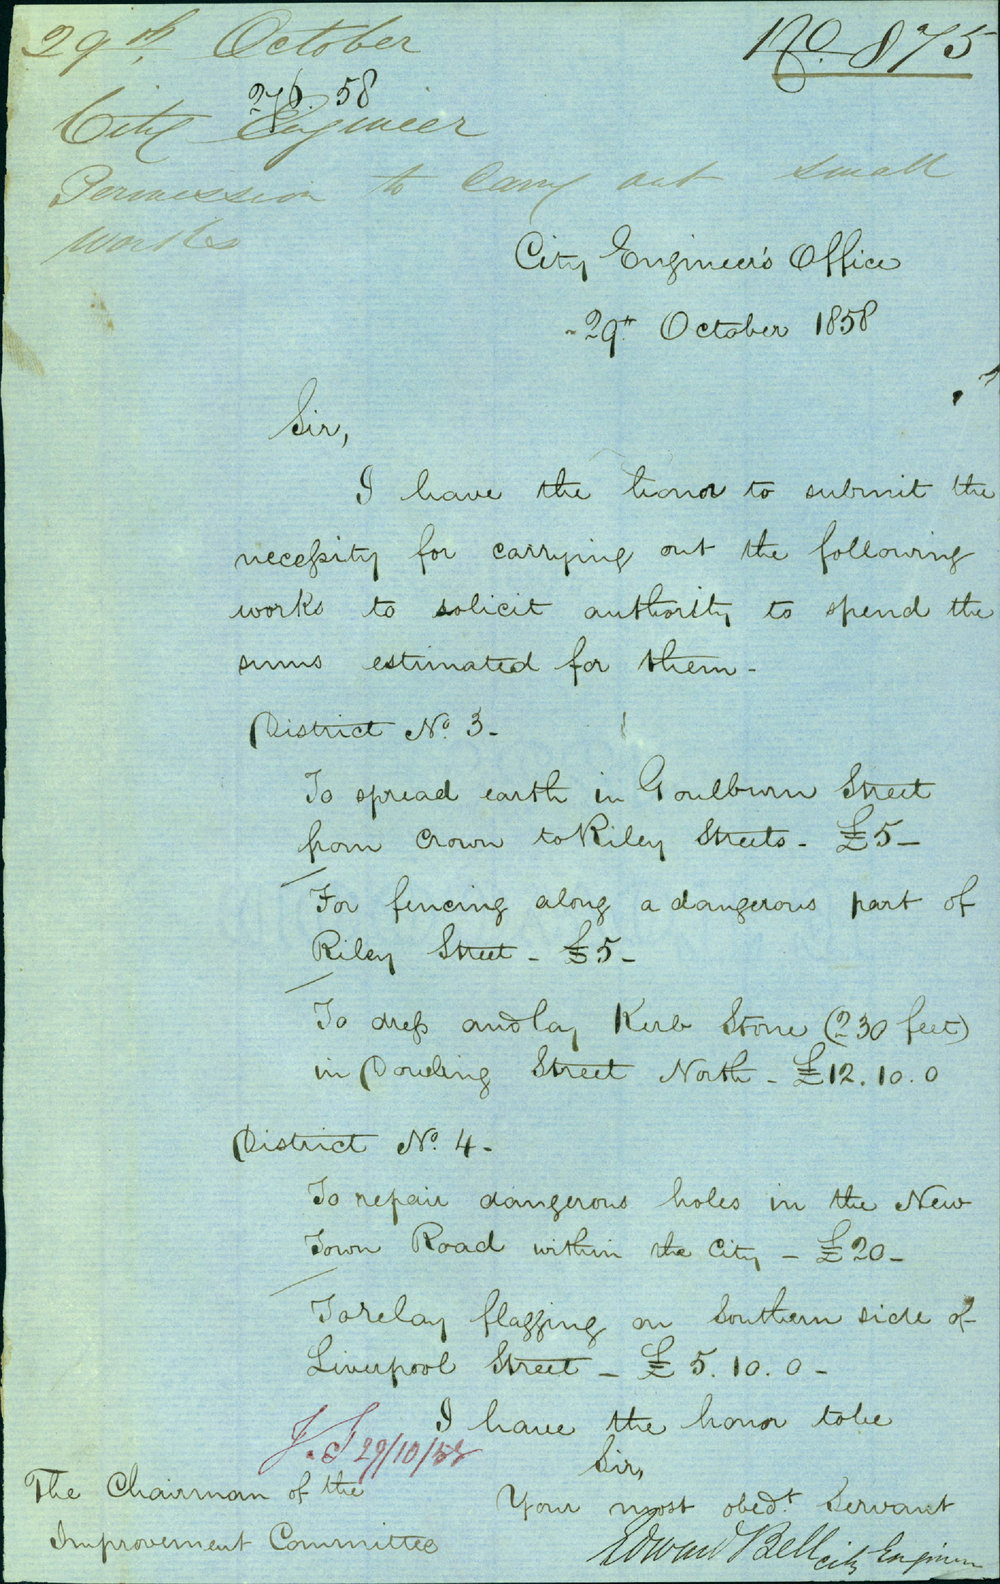 29th October
No. 875
276. 58
City Engineer
Permission to carry out small
works
City Engineer's Office
29th October 1858
Sir,
I have the honor to submit the
necessity for carrying out the following
works to solicit authority to spend the
sums estimated for them -
District No. 3 -
To spread earth in Goulburn Street
from Crown to Riley Streets - £5 -
For fencing along a dangerous part of
Riley Street - £5 -
To dress and lay Kerb Stone (230 feet)
in Dowling Street North - £12. 10. 0
District No. 4 -
To repair dangerous holes in the New
Town Road within the City - £20 -
To relay flagging on Southern side of
Liverpool Street - £5. 10. 0 -
I have the honor to be
29/10/58
Sir,
Your most obedt. Servant
Edward Bell City Engineer
The Chairman of the
Improvement Committee